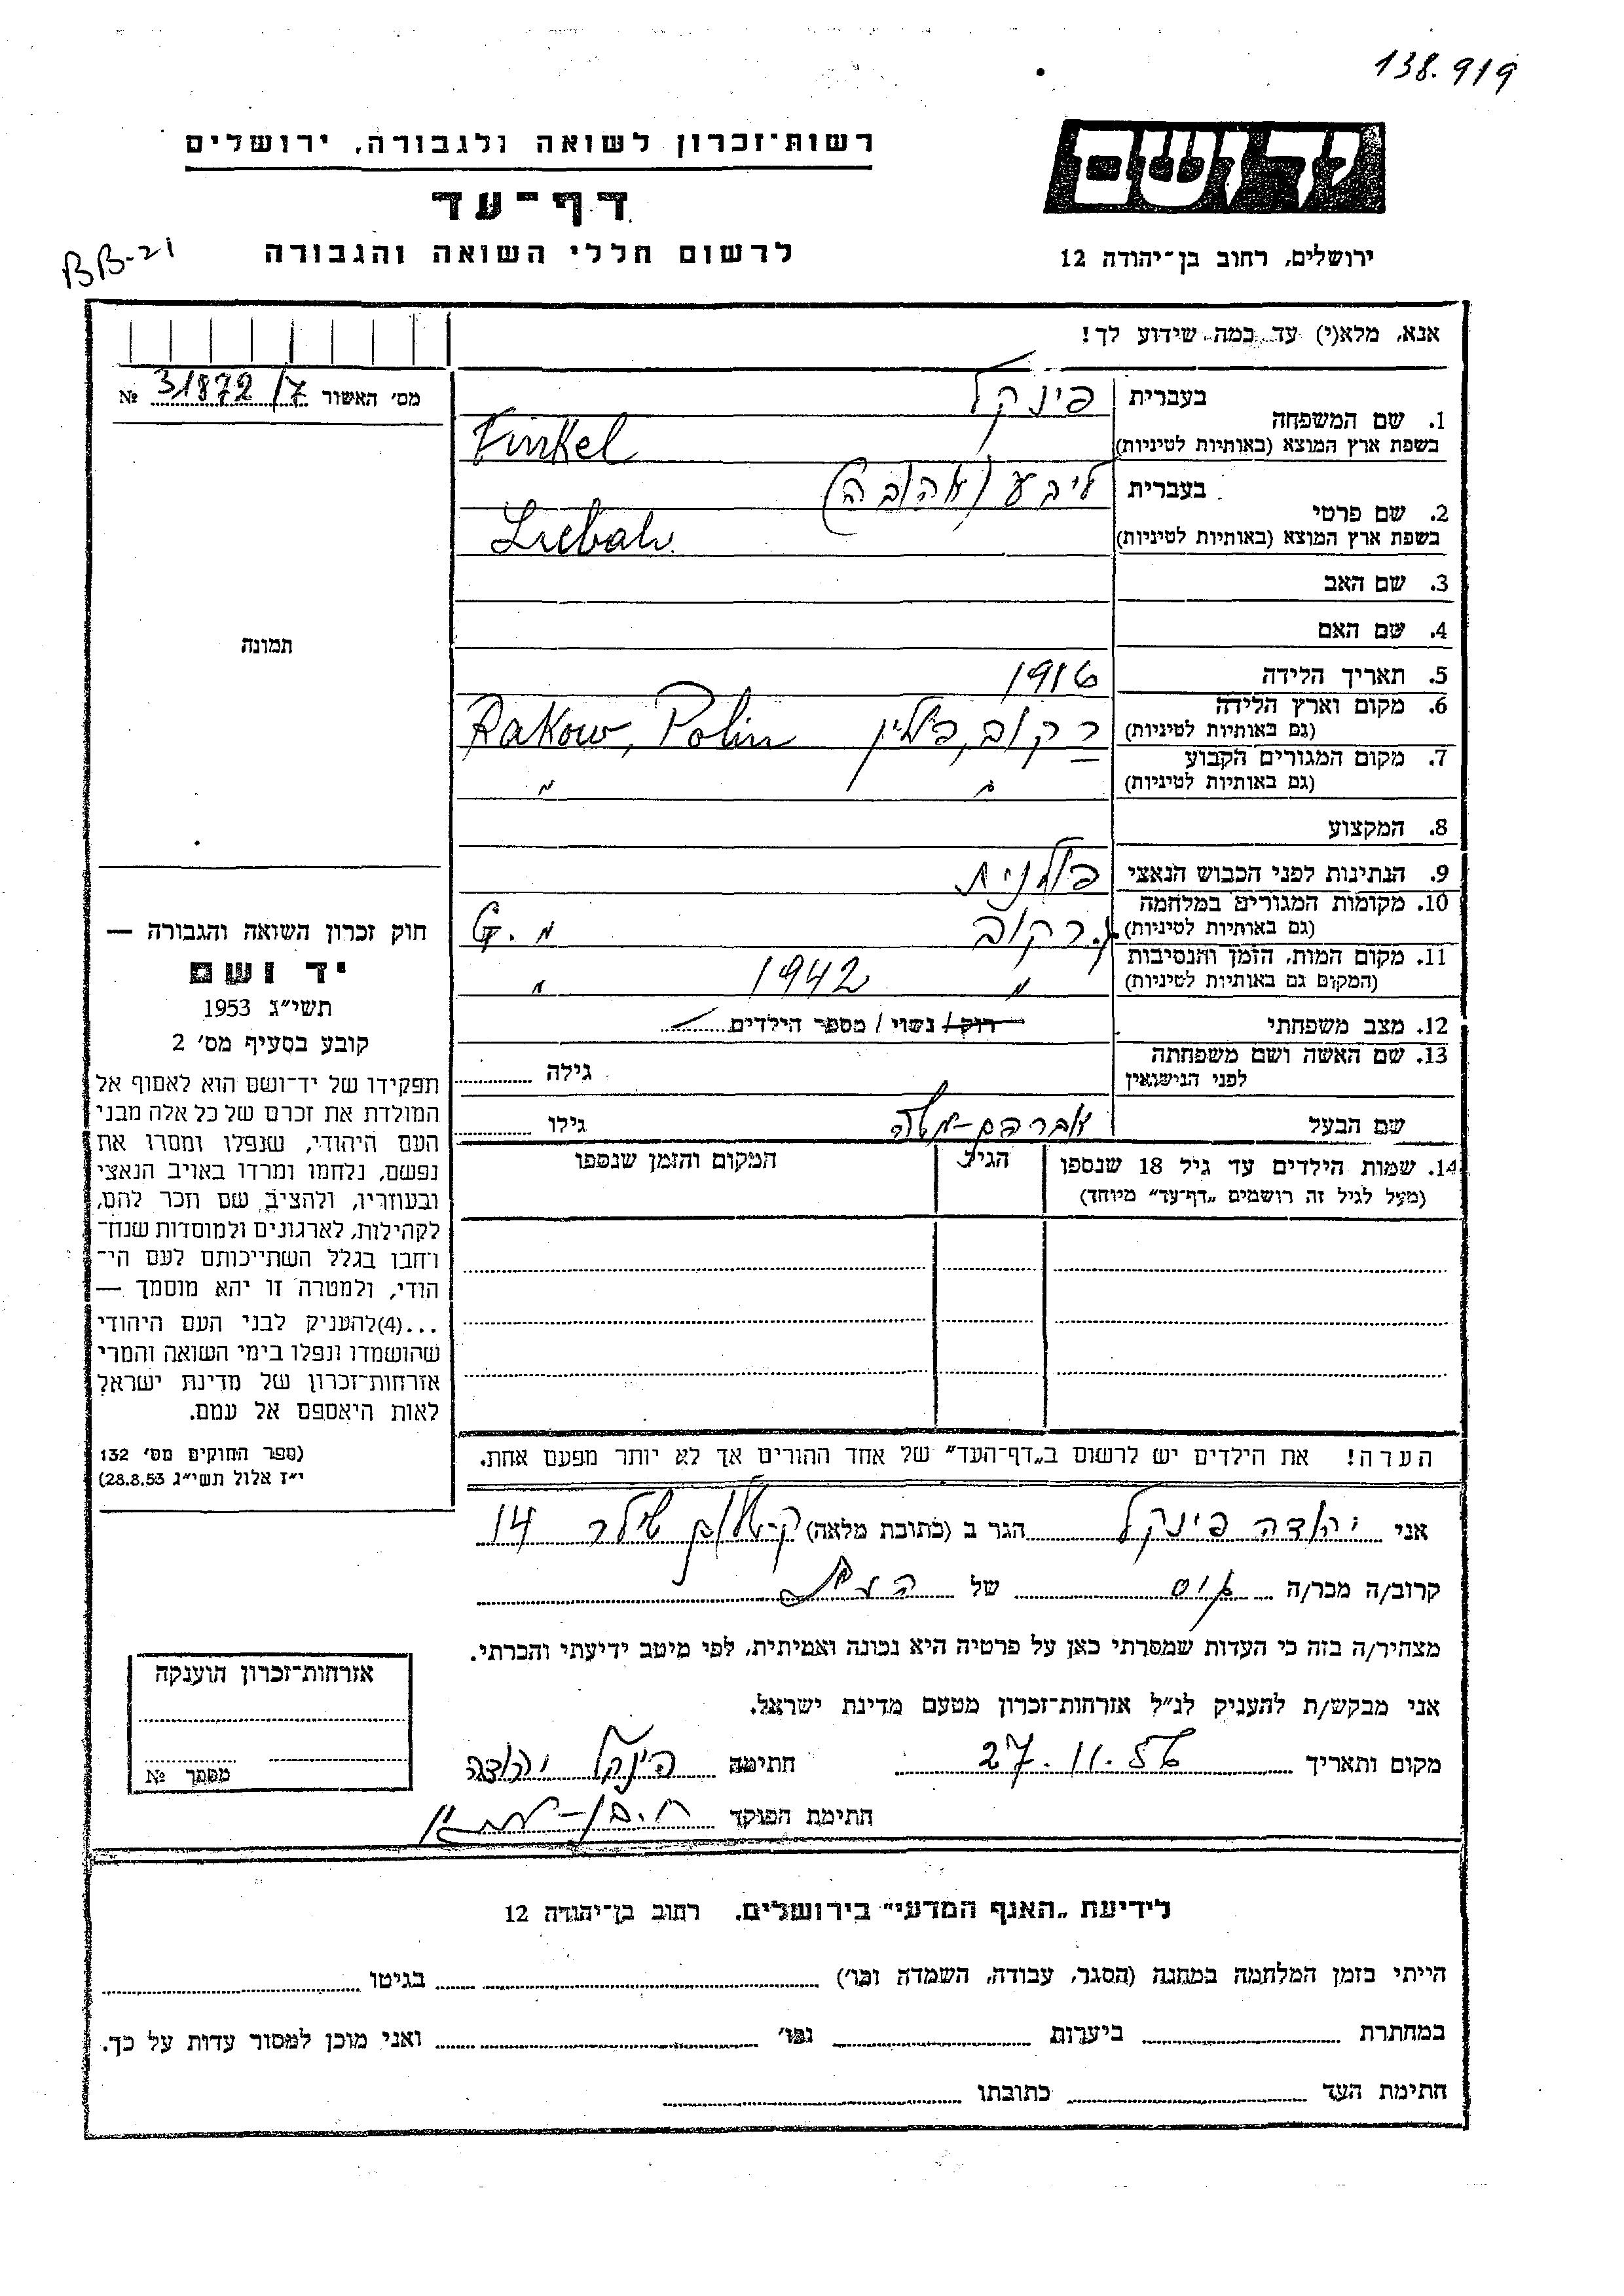 138.919
יד ושם
ירושלים, רחוב בן־יהודה 12
רשות־זכרון לשואה ולגבורה, ירושלים
דף־עד
לרשום חללי השואה והגבורה
BB-21
אנא, מלא(י) עד כמה שידוע לך!
מס׳ האשור 31872/7 №
תמונה
1. שם המשפחה
בעברית פינקל
בשפת ארץ המוצא (באותיות לטיניות) Finkel
2. שם פרטי
בעברית ליבע (אהובה)
בשפת ארץ המוצא (באותיות לטיניות) Liebah
3. שם האב
4. שם האם
5. תאריך הלידה 1916
6. מקום וארץ הלידה
(גם באותיות לטיניות) רקוב, פולין Rakow, Polin
7. מקום המגורים הקבוע
(גם באותיות לטיניות) " "
8. המקצוע
9. הנתינות לפני הכבוש הנאצי פולנית
10. מקומות המגורים במלחמה
(גם באותיות לטיניות) ג. רקוב " .G
11. מקום המות, הזמן והנסיבות
(המקום גם באותיות לטיניות) " 1942 "
12. מצב משפחתי רוק / נשוי / מספר הילדים
13. שם האשה ושם משפחתה
לפני הנישואין
גילה
שם הבעל אברהם-משה גילו
14. שמות הילדים עד גיל 18 שנספו
(מעל לגיל זה רושמים „דף־עד” מיוחד)
הגיל
המקום והזמן שנספו
הערה! את הילדים יש לרשום ב„דף־העד” של אחד ההורים אך לא יותר מפעם אחת.
חוק זכרון השואה והגבורה —
יד ושם
תשי״ג 1953
קובע בסעיף מס׳ 2
תפקידו של יד־ושם הוא לאסוף אל
המולדת את זכרם של כל אלה מבני
העם היהודי, שנפלו ומסרו את
נפשם, נלחמו ומרדו באויב הנאצי
ובעוזריו, ולהציב שם וזכר להם,
לקהילות, לארגונים ולמוסדות שנח־
רחבו בגלל השתייכותם לעם הי־
הודי, ולמטרה זו יהא מוסמך —
...(4) להעניק לבני העם היהודי
שהושמדו ונפלו בימי השואה והמרי
אזרחות־זכרון של מדינת ישראל
לאות היאספם אל עמם.
(ספר החוקים מס׳ 132
י״ז אלול תשי״ג 28.8.53)
אני יהודה פינקל הגר ב (כתובת מלאה) 14
קרוב/ה מכר/ה של
מצהיר/ה בזה כי העדות שמסרתי כאן על פרטיה היא נכונה ואמיתית, לפי מיטב ידיעתי והכרתי.
אני מבקש/ת להעניק לנ״ל אזרחות־זכרון מטעם מדינת ישראל.
מקום ותאריך 27.11.56 חתימה פינקל יהודה
חתימת הפוקד
אזרחות־זכרון הוענקה
מספר №
לידיעת „האגף המדעי” בירושלים, רחוב בן־יהודה 12
הייתי בזמן המלחמה במחנה (הסגר, עבודה, השמדה וכו׳) בגיטו
במחתרת ביערות וכו׳ ואני מוכן למסור עדות על כך.
חתימת העד כתובתו